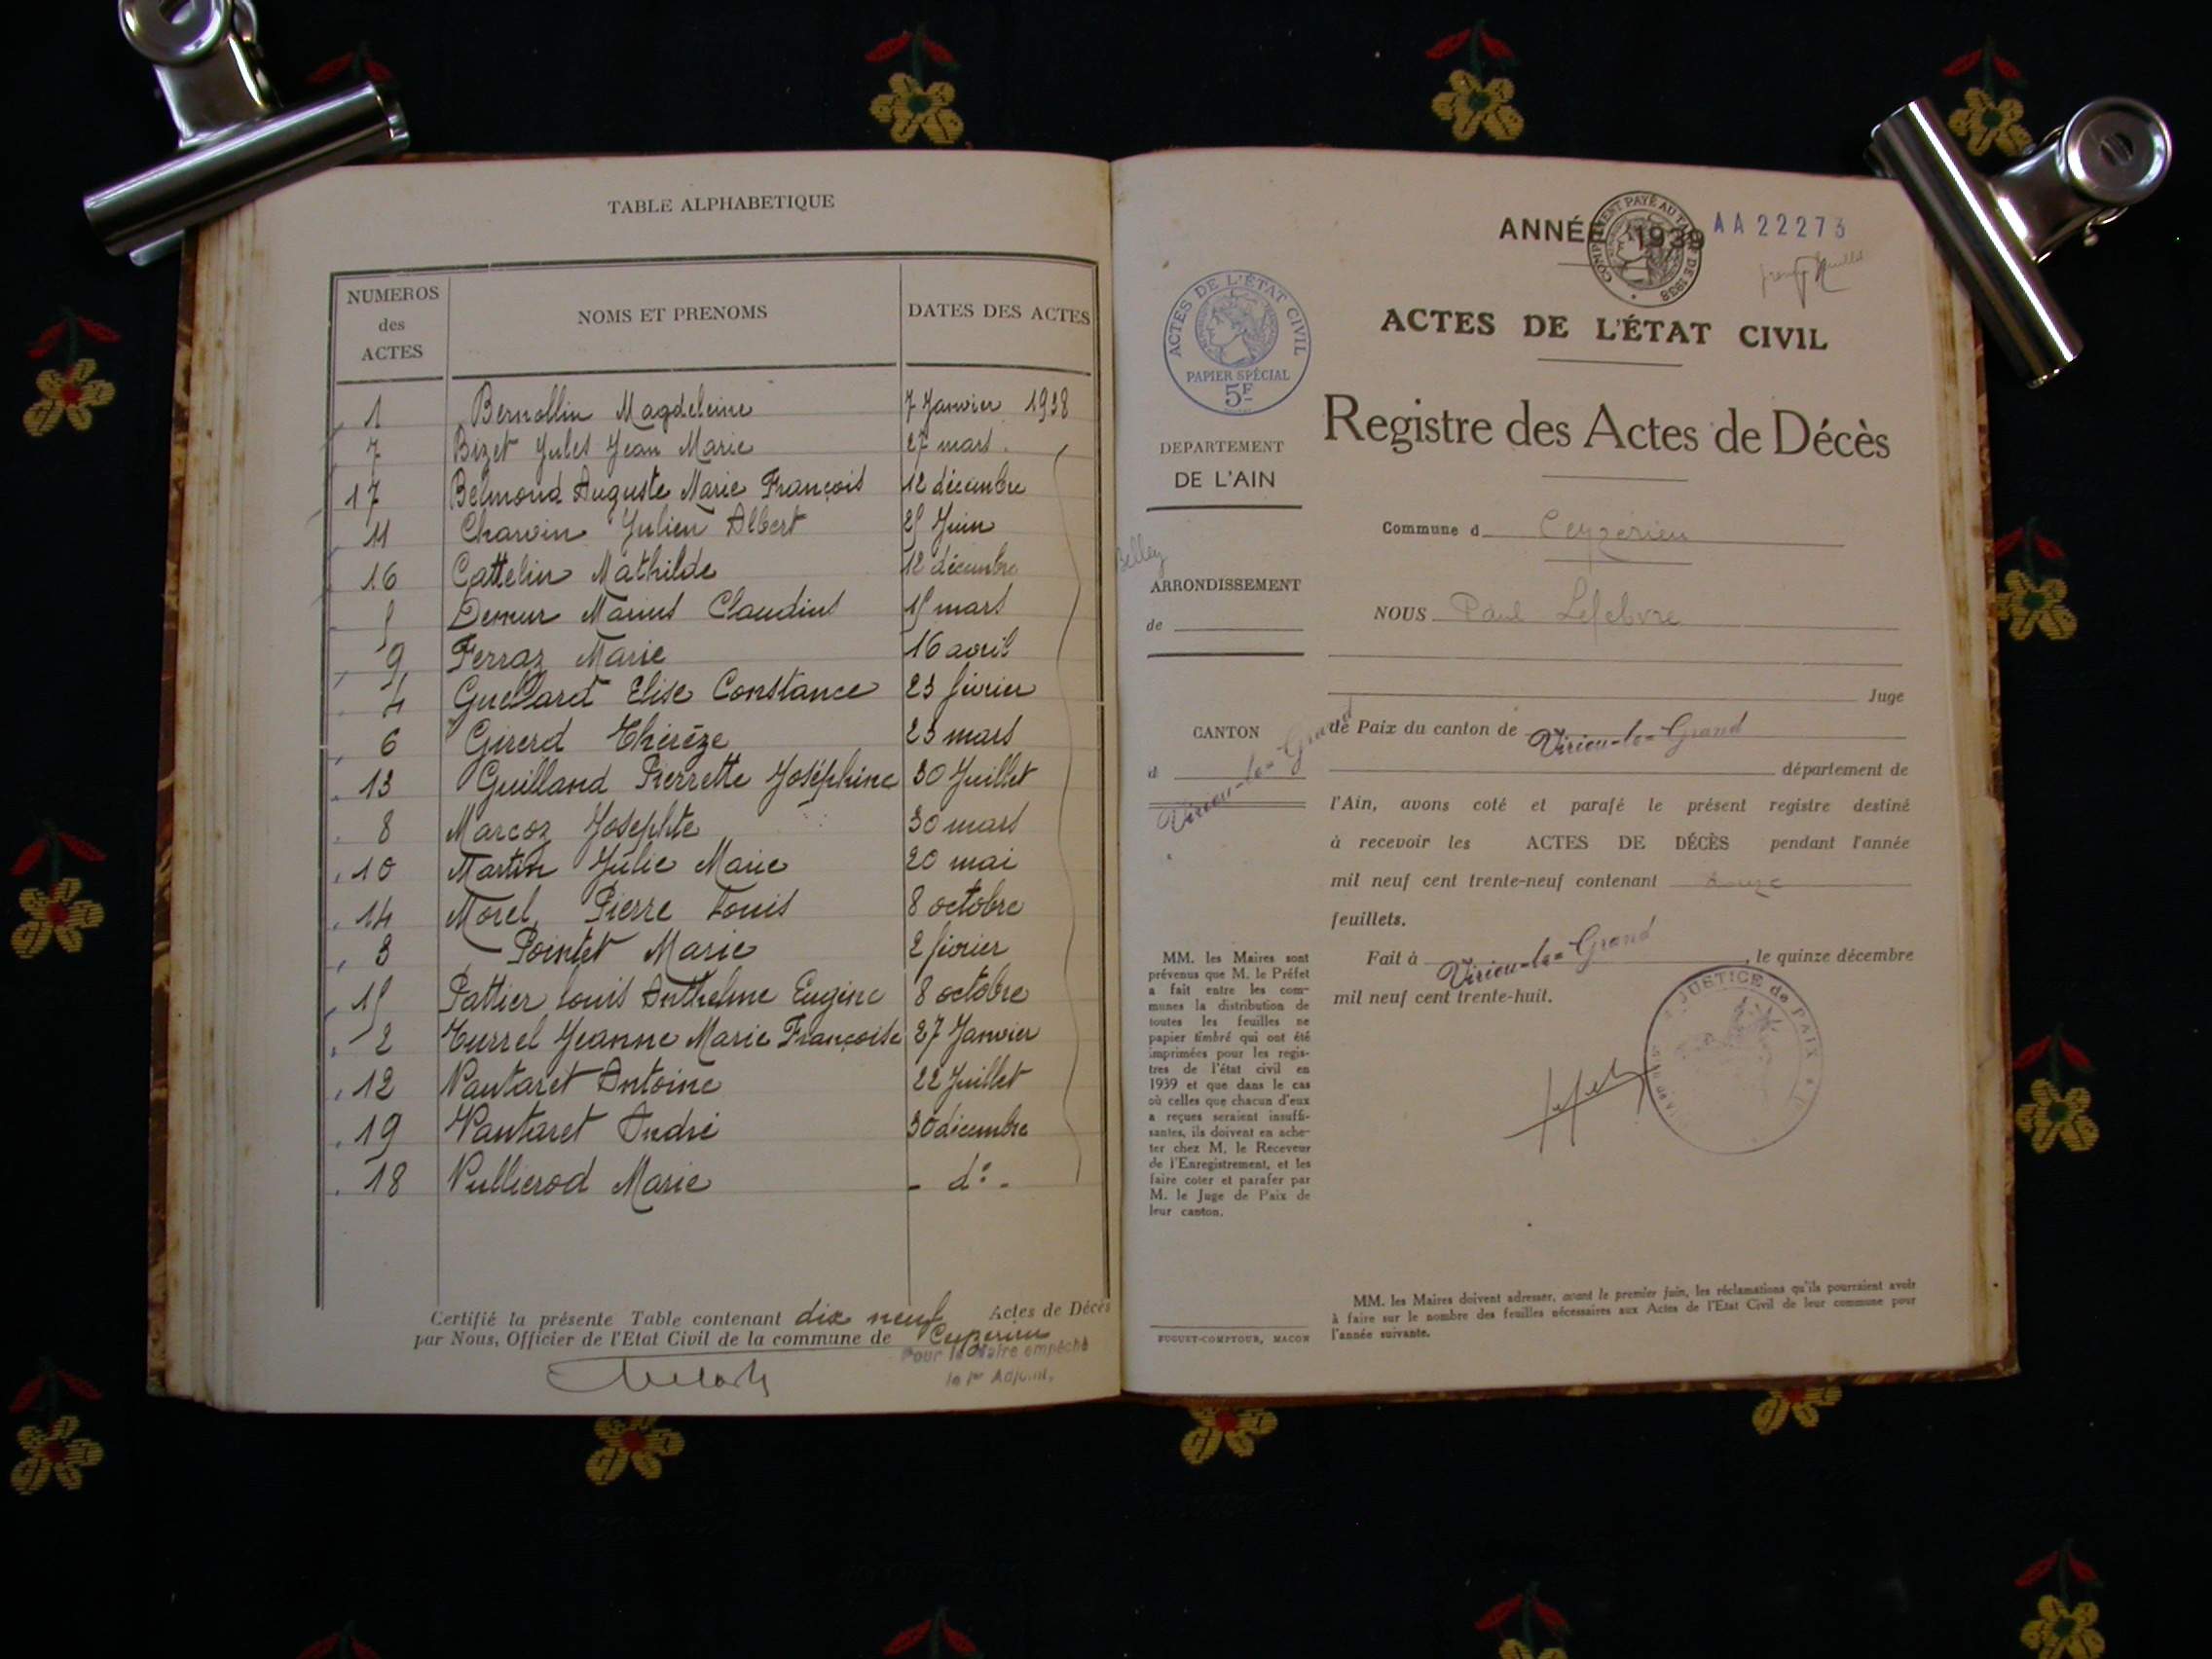 TABLE ALPHABETIQUE
NUMEROS des ACTES NOMS ET PRENOMS DATES DES ACTES
1 Bernollin Magdeleine 7 Janvier 1938
7 Bizet Jules Jean Marie 27 mars
17 Belmond Auguste Marie François 12 décembre
11 Charvin Julien Albert 25 Juin
16 Cattelin Mathilde 12 décembre
5 Demur Marius Claudius 15 mars
9 Ferraz Marie 16 avril
4 Elise Constance 23 février
6 Girerd Thérèze 23 mars
13 Guilland Pierrette Joséphine 30 Juillet
8 Marcoz Josephte 30 mars
10 Martin Julie Marie 20 mai
14 Morel Pierre Louis 8 octobre
3 Pointet Marie 2 février
15 Pattier Louis Anthelme Eugène 8 octobre
2 Turrel Jeanne Marie Françoise 27 Janvier
12 Vautaret Antoine 22 Juillet
19 Vautaret André 30 décembre
18 Vullierod Marie - d° -
Certifié la présente Table contenant dix neuf Actes de Décès
par Nous, Officier de l'Etat Civil de la commune de Ceyzerieu
Pour le Maire empêché
le 1er Adjoint,
ANNÉE 1939 AA 22273
COMPLEMENT PAYÉ AU TARIF DE 1938
premier feuillet
ACTES DE L'ÉTAT CIVIL
PAPIER SPÉCIAL
5F
DEPARTEMENT
DE L'AIN
Belley
ARRONDISSEMENT
de
CANTON
d
Virieu-le-Grand
MM. les Maires sont
prévenus que M. le Préfet
a fait entre les com-
munes la distribution de
toutes les feuilles ne
papier timbré qui ont été
imprimées pour les regis-
tres de l'état civil en
1939 et que dans le cas
où celles que chacun d'eux
a reçues seraient insuffi-
santes, ils doivent en ache-
ter chez M. le Receveur
de l'Enregistrement, et les
faire coter et parafer par
M. le Juge de Paix de
leur canton.
BUGUET-COMPTOUR, MACON
ACTES DE L'ÉTAT CIVIL
Registre des Actes de Décès
Commune d Ceyzérieu
NOUS Paul Lefebvre
Juge
de Paix du canton de Virieu-le-Grand
département de
l'Ain, avons coté et parafé le présent registre destiné
à recevoir les ACTES DE DÉCÈS pendant l'année
mil neuf cent trente-neuf contenant
feuillets.
Fait à Virieu-le-Grand, le quinze décembre
mil neuf cent trente-huit.
JUSTICE de PAIX
MM. les Maires doivent adresser, avant le premier juin, les réclamations qu'ils pourraient avoir
à faire sur le nombre des feuilles nécessaires aux Actes de l'Etat Civil de leur commune pour
l'année suivante.